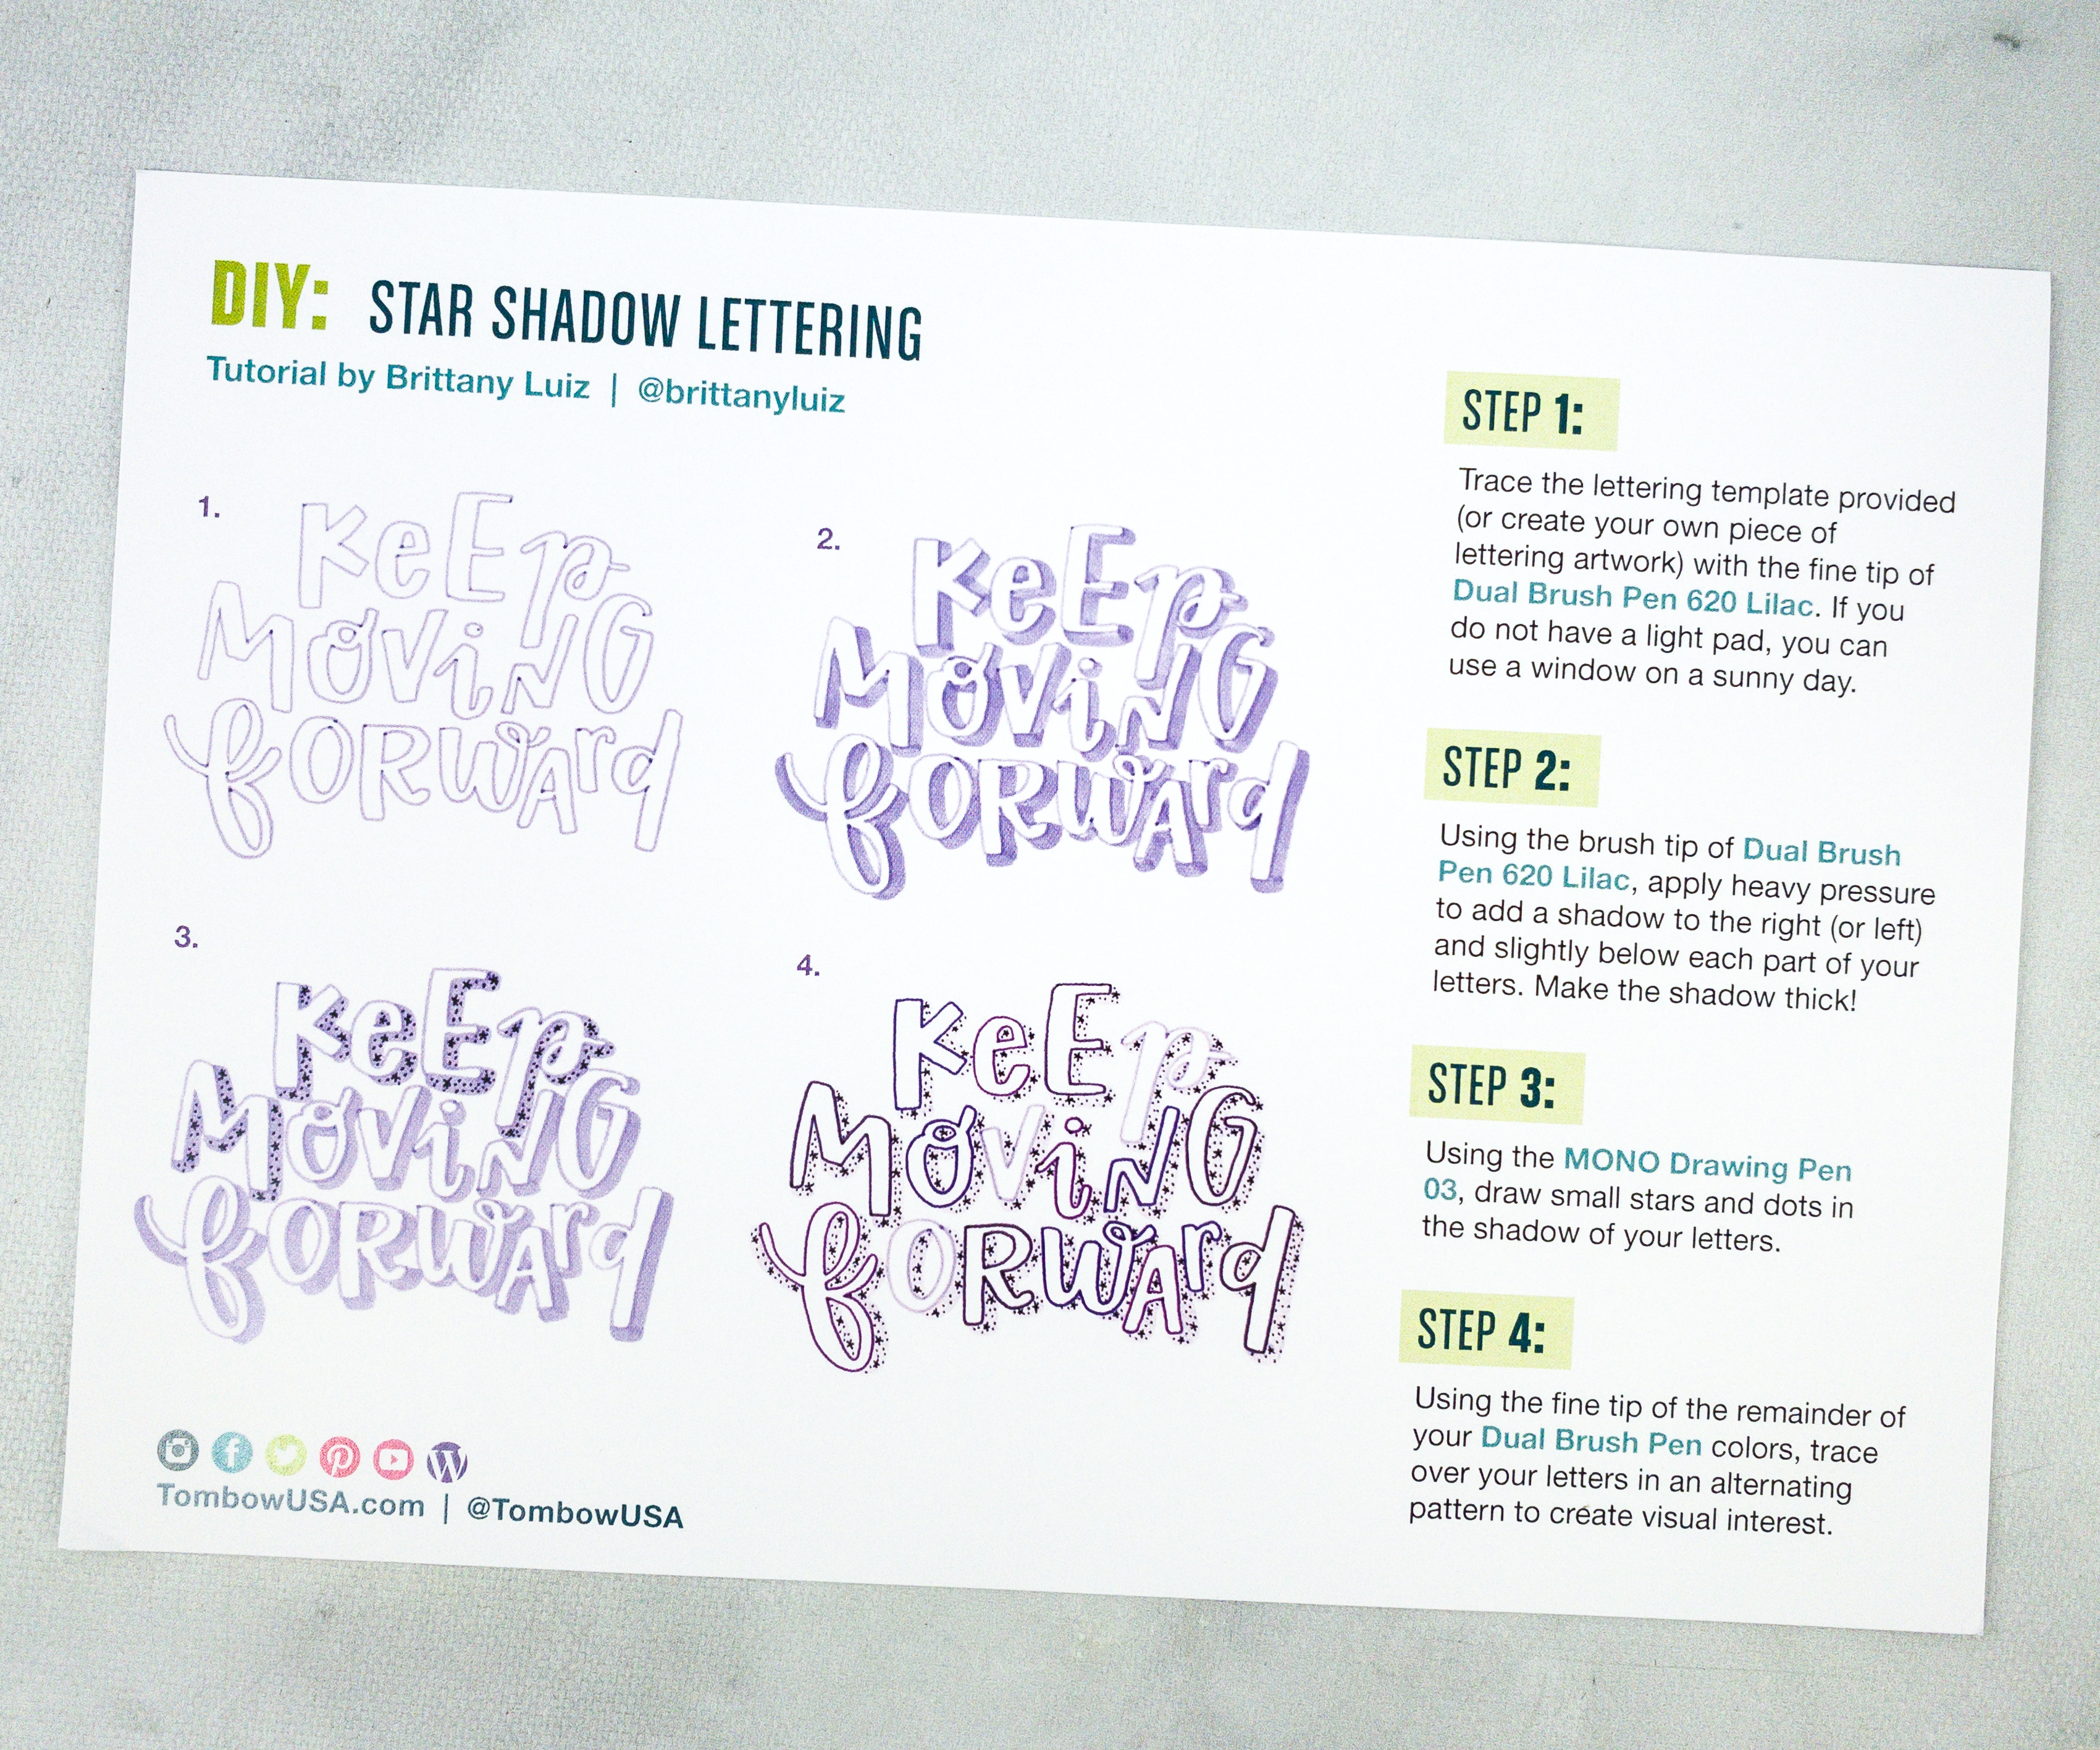 DIY: STAR SHADOW LETTERING
Tutorial by Brittany Luiz | @brittanyluiz
1.
KeEp
MOViNG
fORWArd
2.
KeEp
MOViNG
fORWArd
3.
KeEp
MOViNG
fORWArd
4.
KeEp
MOViNG
fORWArd
STEP 1:
Trace the lettering template provided
(or create your own piece of
lettering artwork) with the fine tip of
Dual Brush Pen 620 Lilac. If you
do not have a light pad, you can
use a window on a sunny day.
STEP 2:
Using the brush tip of Dual Brush
Pen 620 Lilac, apply heavy pressure
to add a shadow to the right (or left)
and slightly below each part of your
letters. Make the shadow thick!
STEP 3:
Using the MONO Drawing Pen
03, draw small stars and dots in
the shadow of your letters.
STEP 4:
Using the fine tip of the remainder of
your Dual Brush Pen colors, trace
over your letters in an alternating
pattern to create visual interest.
TombowUSA.com | @TombowUSA